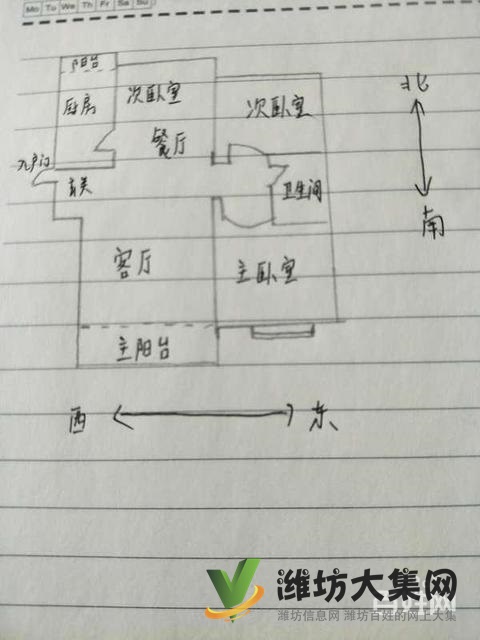 Mo Tu We Th Fr Sa Su
阳台
厨房
次卧室
次卧室
餐厅
入户门
玄关
卫生间
客厅
主卧室
主阳台
北
南
西
东
潍坊大集网
潍坊信息网 潍坊百姓的网上大集